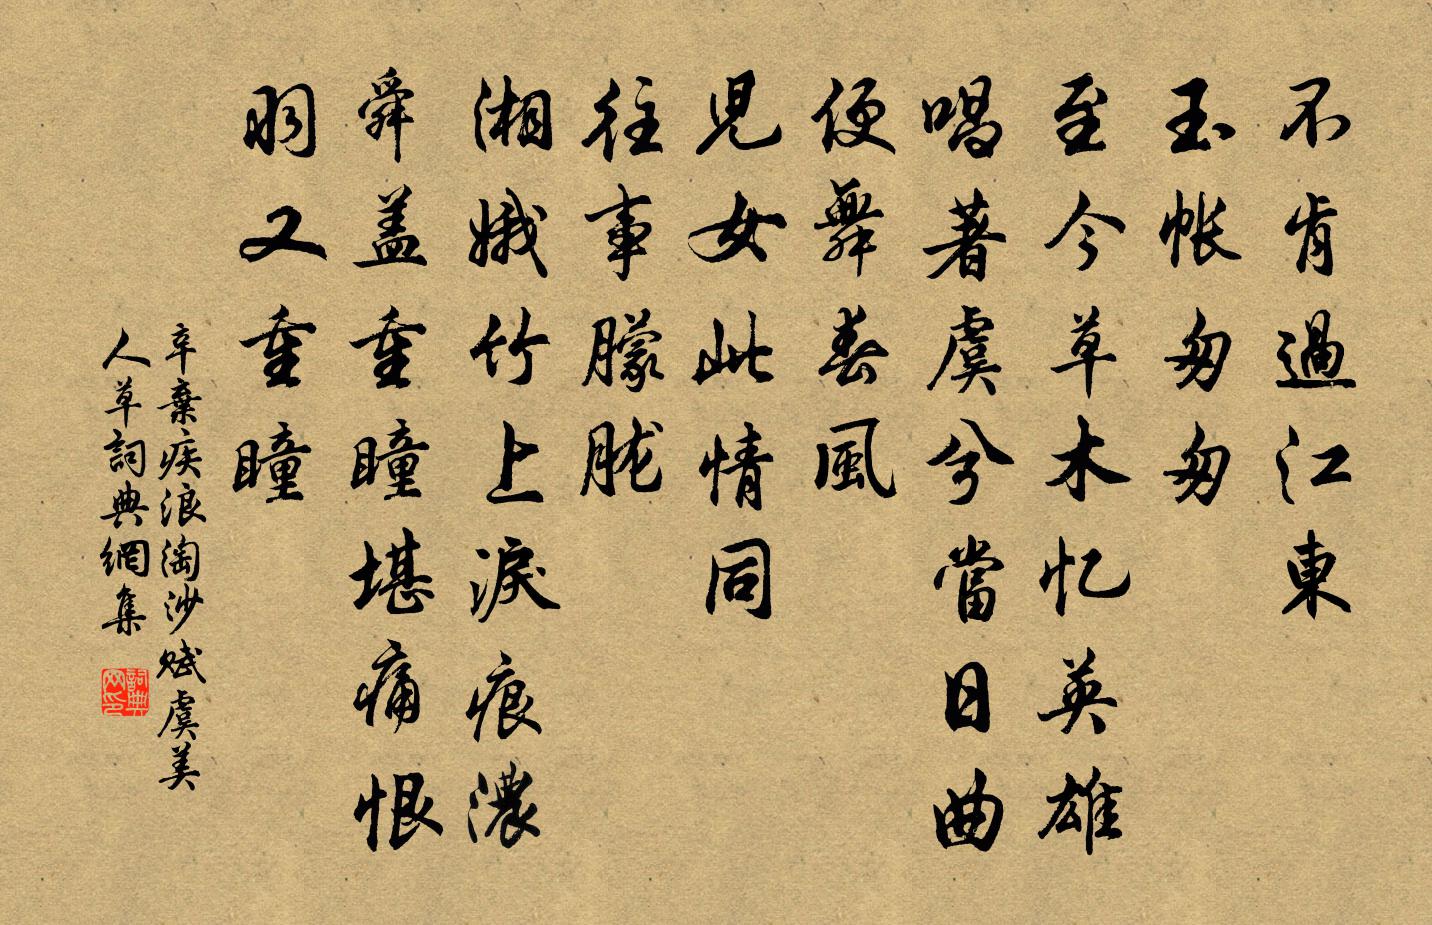 不肯過江東
玉帐匆匆
至今草木忆英雄
唱著虞兮當日曲
便舞春風
児女此情同
往事朦胧
湘娥竹上淚痕濃
舜盖重瞳堪痛恨
羽又重瞳
辛棄疾浪淘沙赋虞美
人草詞典網集
詞典
网印